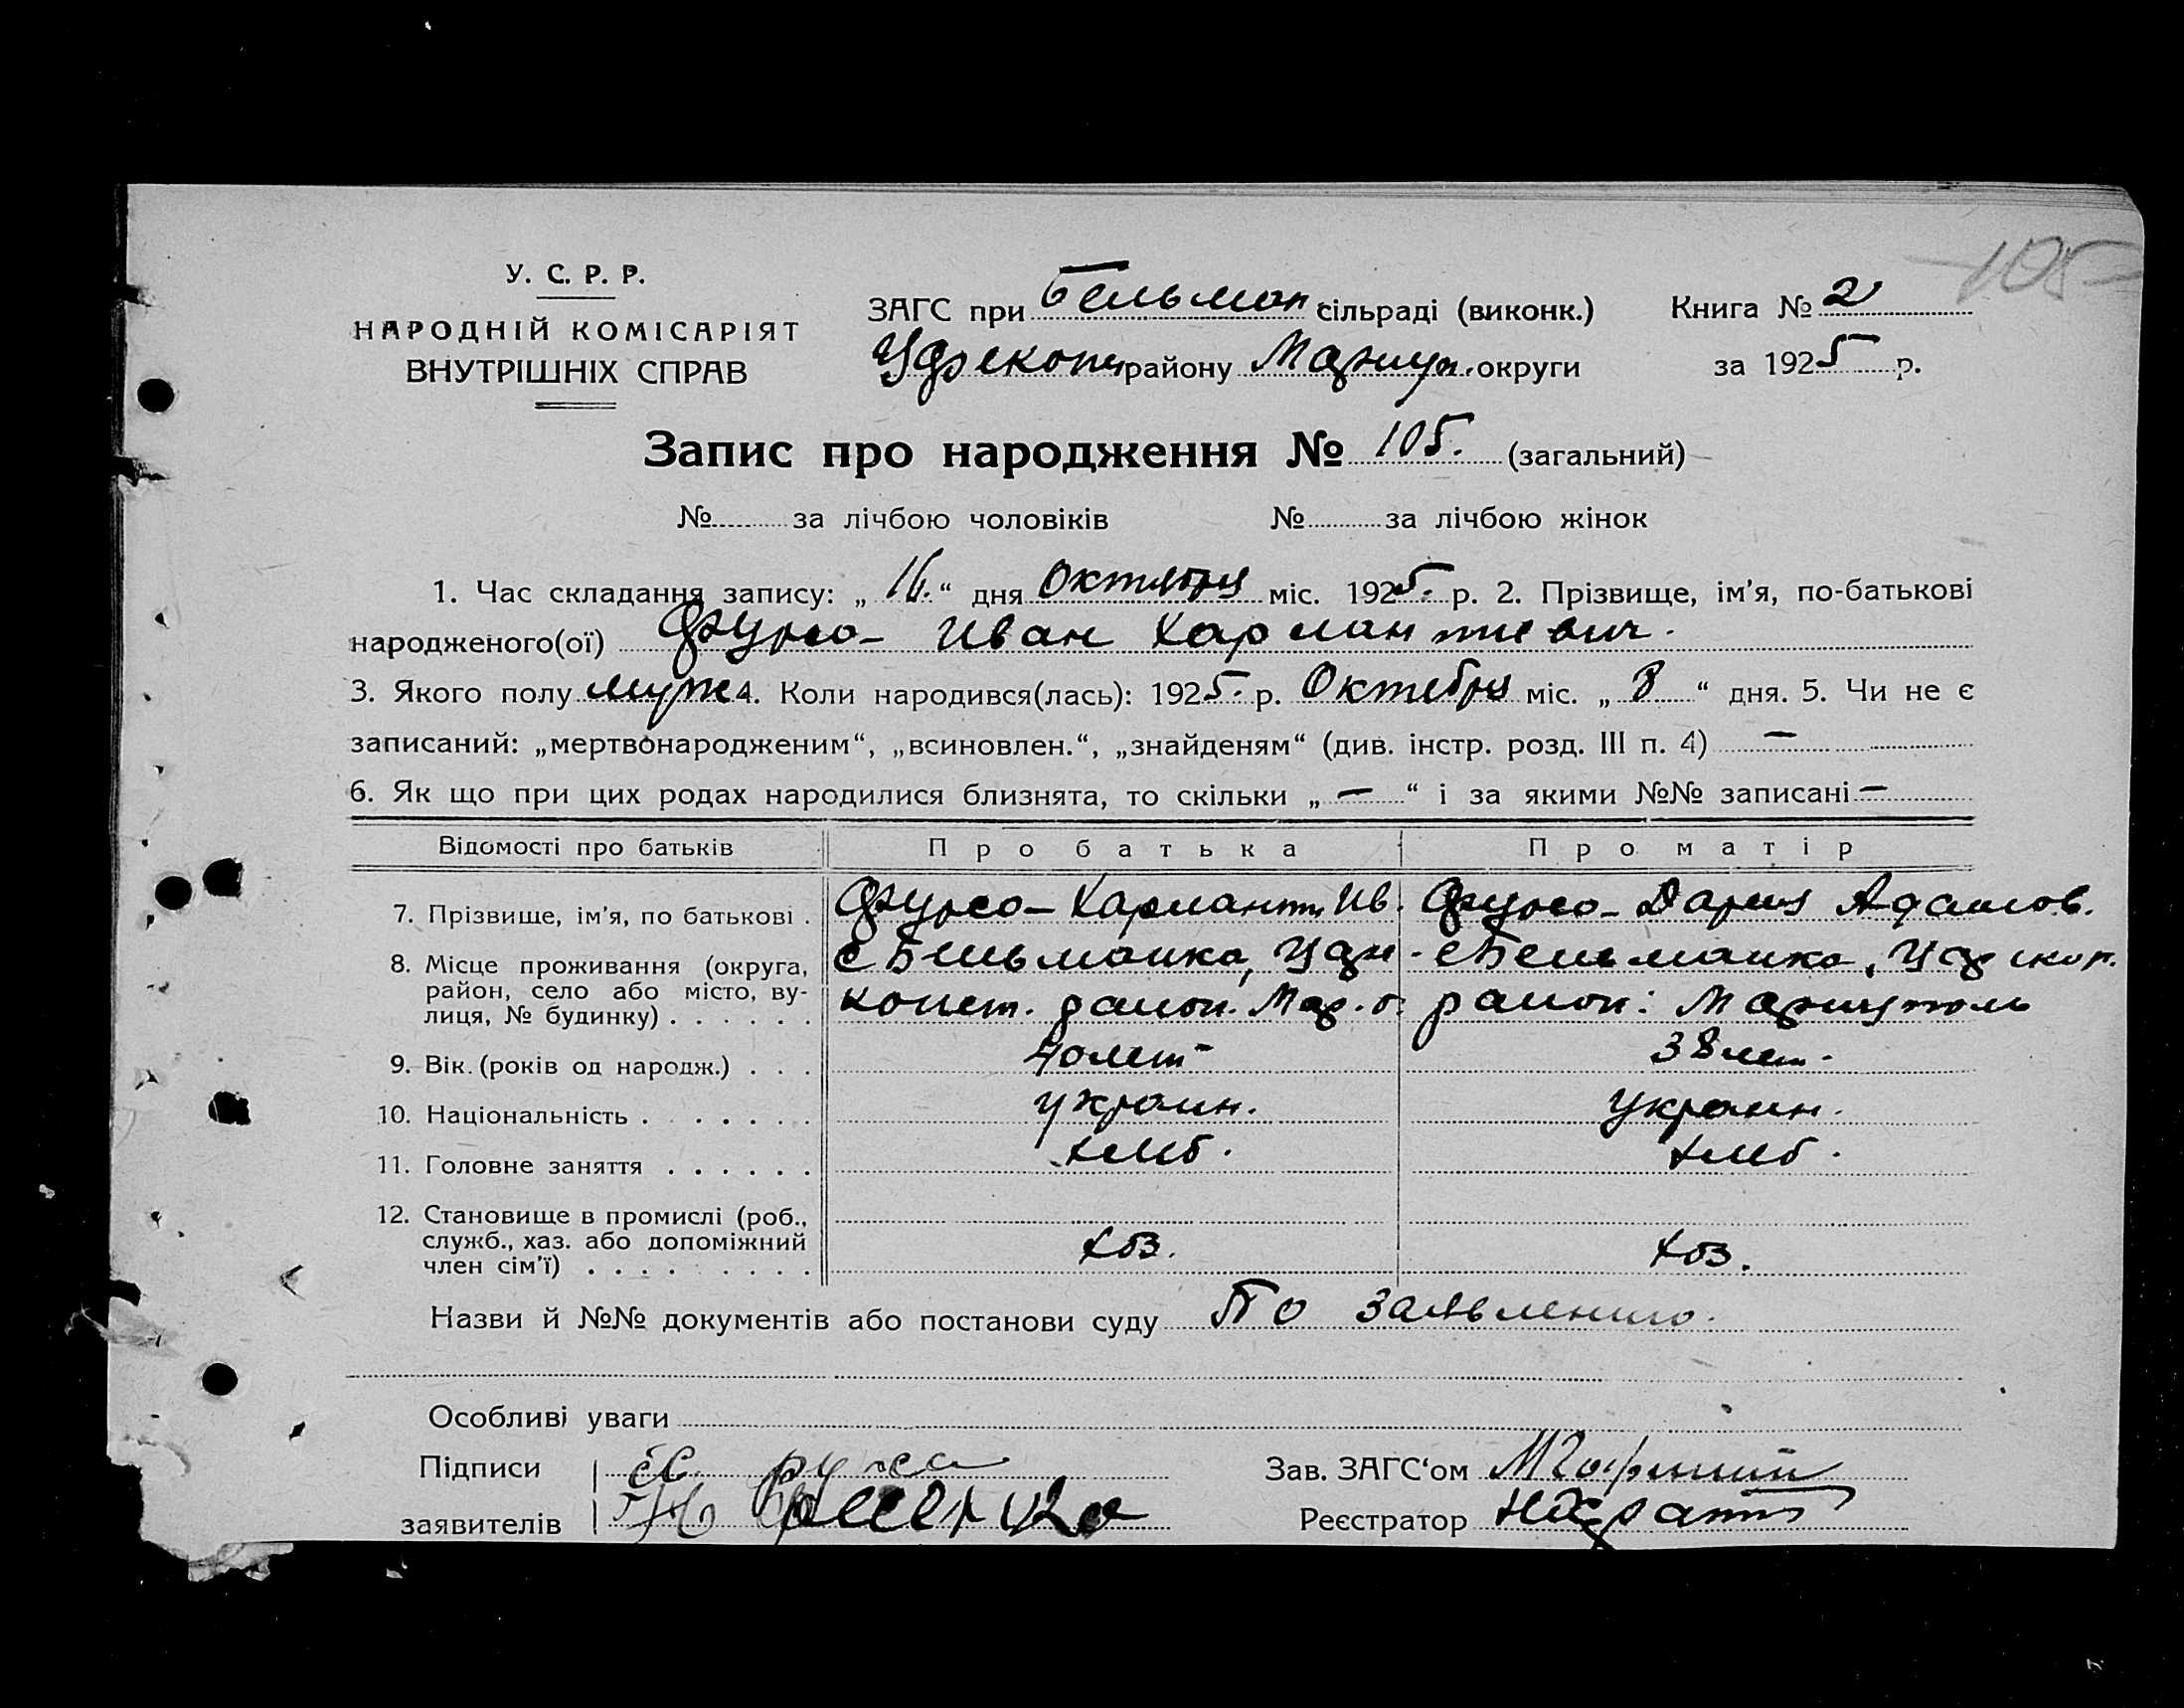 105
У. С. Р. Р.
НАРОДНІЙ КОМІСАРІЯТ
ВНУТРІШНІХ СПРАВ
ЗАГС при Бельман сільраді (виконк.)
Царекон району Мариуп. округи
Книга № 2
за 1925 р.
Запис про народження № 105. (загальний)
№ за лічбою чоловіків № за лічбою жінок
1. Час складання запису: „16.“ дня Октября міс. 1925 р. 2. Прізвище, ім'я, по-батькові
народженого(ої) Фурсо- Иван Харлантиевич.
3. Якого полу муж 4. Коли народився(лась): 1925. р. Октября міс. „8“ дня. 5. Чи не є
записаний: „мертвонародженим“, „всиновлен.“, „знайденям“ (див. інстр. розд. III п. 4) —
6. Як що при цих родах народилися близнята, то скільки „—“ і за якими №№ записані —
Відомості про батьків Про батька Про матір
7. Прізвище, ім'я, по батькові . Фурсо- Харлант. Ив. Фурсо- Дария Адамов.
8. Місце проживання (округа, с Бельманка, Цар- с Бельманка, Царекон.
район, село або місто, ву-
лиця, № будинку) . . . . . . конст. район. Мар. о. район: Мариуполь
9. Вік. (років од народж.) . . . 40 лет 38 лет.
10. Національність . . . . . . . украин. украин.
11. Головне заняття . . . . . . хлеб. хлеб.
12. Становище в промислі (роб.,
служб., хаз. або допоміжний хоз. хоз.
член сім'ї) . . . . . . . . .
Назви й №№ документів або постанови суду По заявлению.
Особливі уваги
Підписи
заявителів
Зав. ЗАГС‘ом
Реєстратор